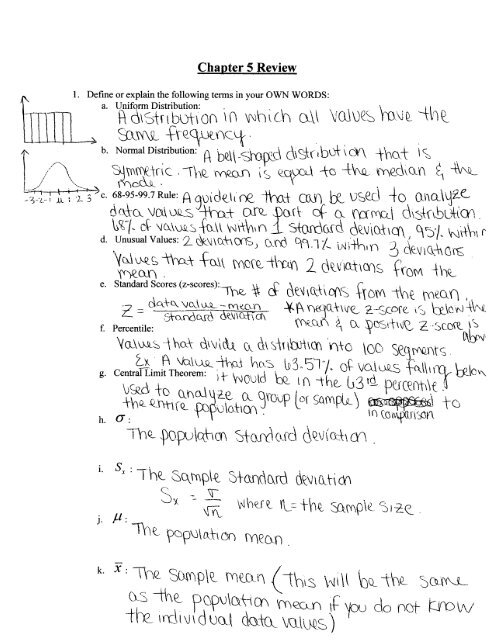 Chapter 5 Review
1. Define or explain the following terms in your OWN WORDS:
a. Uniform Distribution:
A distribution in which all values have the
same frequency.
b. Normal Distribution: A bell-shaped distribution that is
symmetric. The mean is equal to the median & the
mode.
-3 -2 -1 μ 1 2 3
c. 68-95-99.7 Rule: A guideline that can be used to analyze
data values that are part of a normal distribution.
68% of values fall within 1 standard deviation, 95% within
d. Unusual Values: 2 deviations, and 99.7% within 3 deviations
Values that fall more than 2 deviations from the
mean.
e. Standard Scores (z-scores): The # of deviations from the mean.
Z = data value - mean / standard deviation *A negative z-score is below the
mean & a positive z-score is
above
f. Percentile:
Values that divide a distribution into 100 segments.
Ex. A value that has 63.57% of values falling below
g. Central Limit Theorem: it would be in the 63rd percentile.
Used to analyze a group (or sample) in comparison to
the entire population.
h. σ:
The population standard deviation.
i. Sx: The sample standard deviation
Sx = σ / √n where n = the sample size.
j. μ:
The population mean.
k. x̄: The sample mean (This will be the same
as the population mean if you do not know
the individual data values)